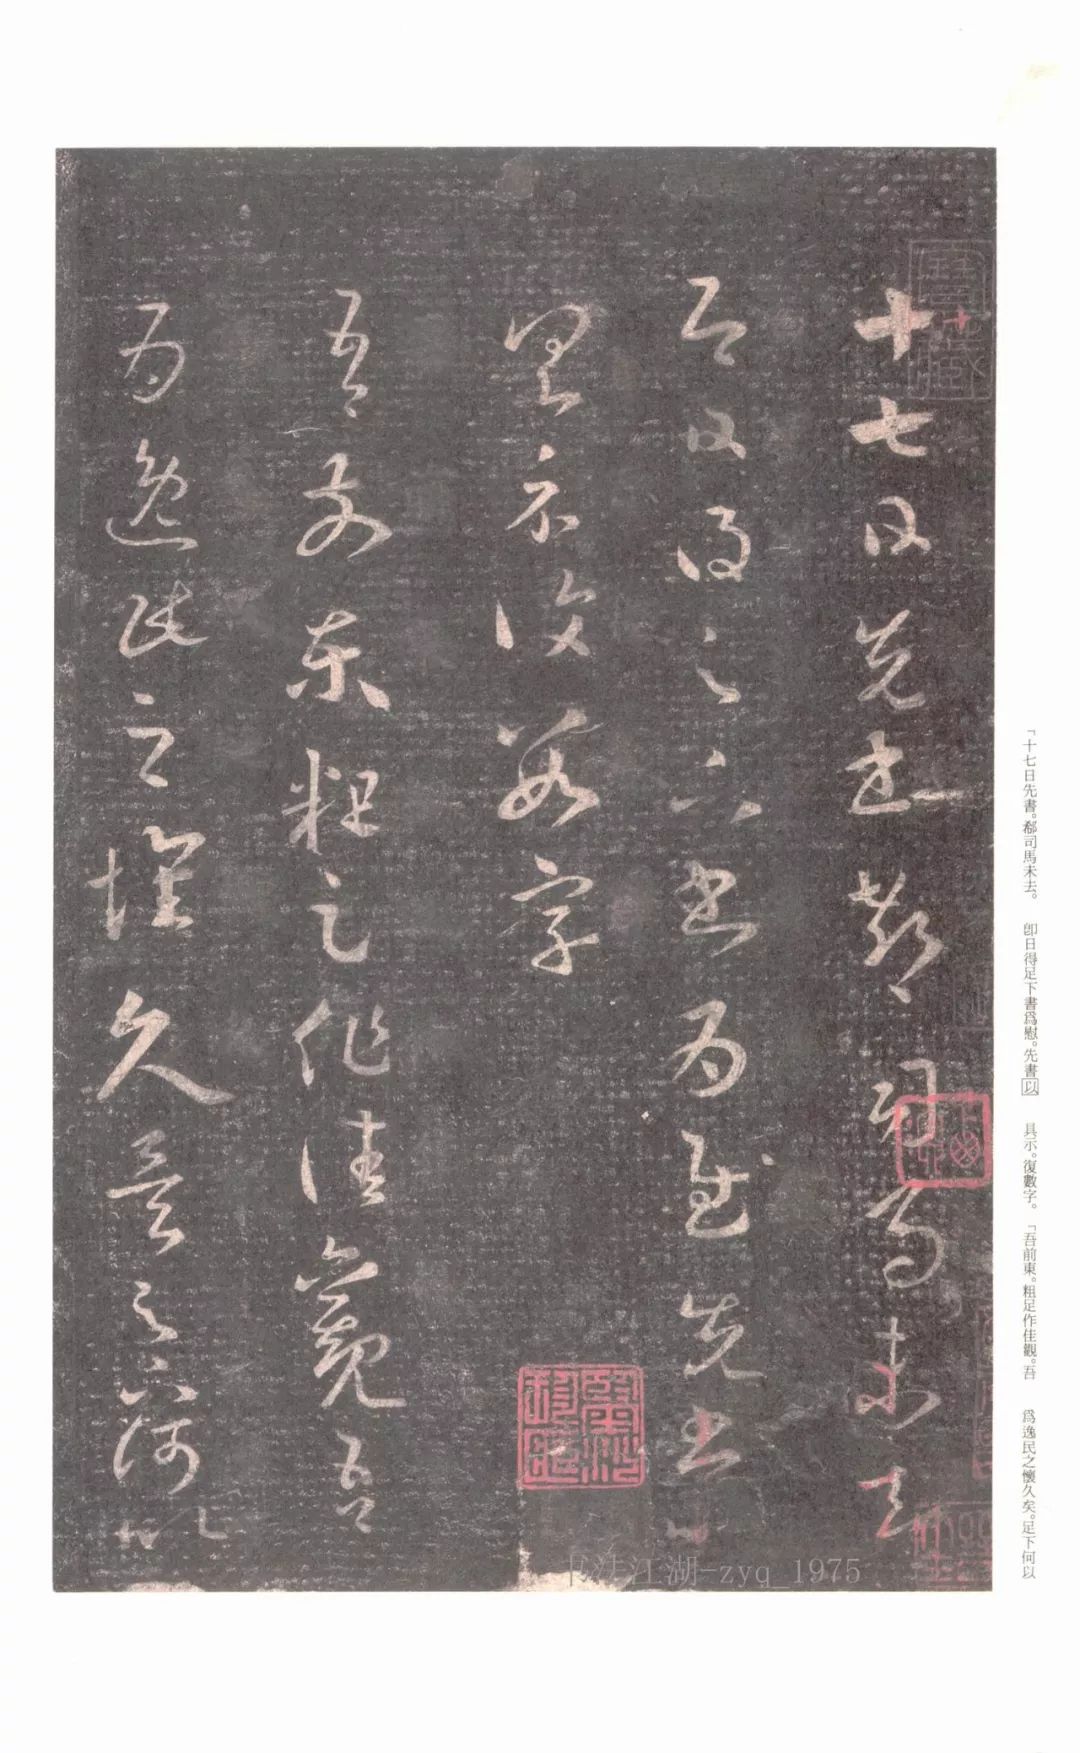 十七日先書郗司馬未去
即日得足下書爲慰先書以
具示復數字
吾前東粗足作佳觀吾
爲逸民之懷久矣足下何以
「十七日先書。郗司馬未去。　卽日得足下書爲慰。先書以　具示。復數字。「吾前東。粗足作佳觀。吾　爲逸民之懷久矣。足下何以
书法江湖-zyq_1975